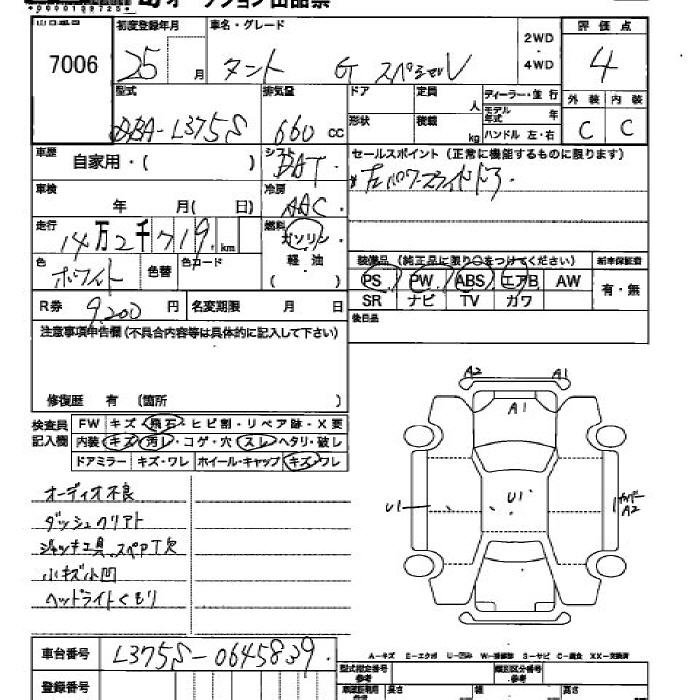 オークション出品票
7006
初度登録年月 車名・グレード 2WD ・ 4WD 評価点
25 月 タント G スペシャル 4
型式 排気量 ドア 定員 人 ディーラー・並行 外装 内装
DBA-L375S 660 cc 形状 積載 kg モデル年式 年 ハンドル 左・右 C C
車歴 自家用・( ) シフト DAT セールスポイント (正常に機能するものに限ります)
車検 年 月( 日) 冷房 AAC 左パワースライドドア
走行 14万2千719 km 燃料 ガソリン 軽油 ( )
色 ホワイト 色替 色コード
装備品 (純正品に限り○をつけてください) 新車保証書
PS PW ABS エアB AW 有・無
SR ナビ TV カワ
R券 9,200 円 名変期限 月 日 後日品
注意事項申告欄(不具合内容等は具体的に記入して下さい)
修復歴 有 (箇所 )
検査員記入欄 FW キズ・飛石・ヒビ割・リペア跡・X要
内装・キズ・汚レ・コゲ・穴・スレ・ヘタリ・破レ
ドアミラー キズ・ワレ ホイール・キャップ キズ・ワレ
A2 A1
A1
U1 U1
A2
オーディオ不良
ダッシュクリアト
ジャッキ工具、スペアT欠
小キズ小凹
ヘッドライトくもり
A-キズ E-エクボ U-凹み W-補修跡 S-サビ C-腐食 XX-交換済
車台番号 L375S-0645839
登録番号 型式指定番号 参考 類別区分番号 参考
長さ 幅 高さ